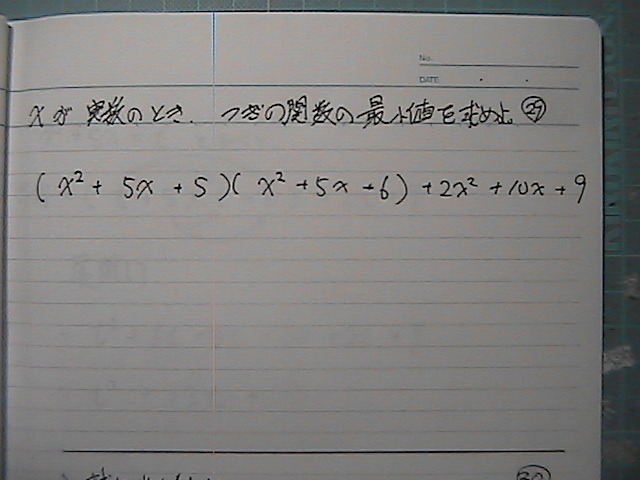 No.
DATE
xが 実数のとき. つぎの関数の最小値を求めよ。㉙
(x²+ 5x +5)(x²+5x+6)+2x²+10x+9
㉚